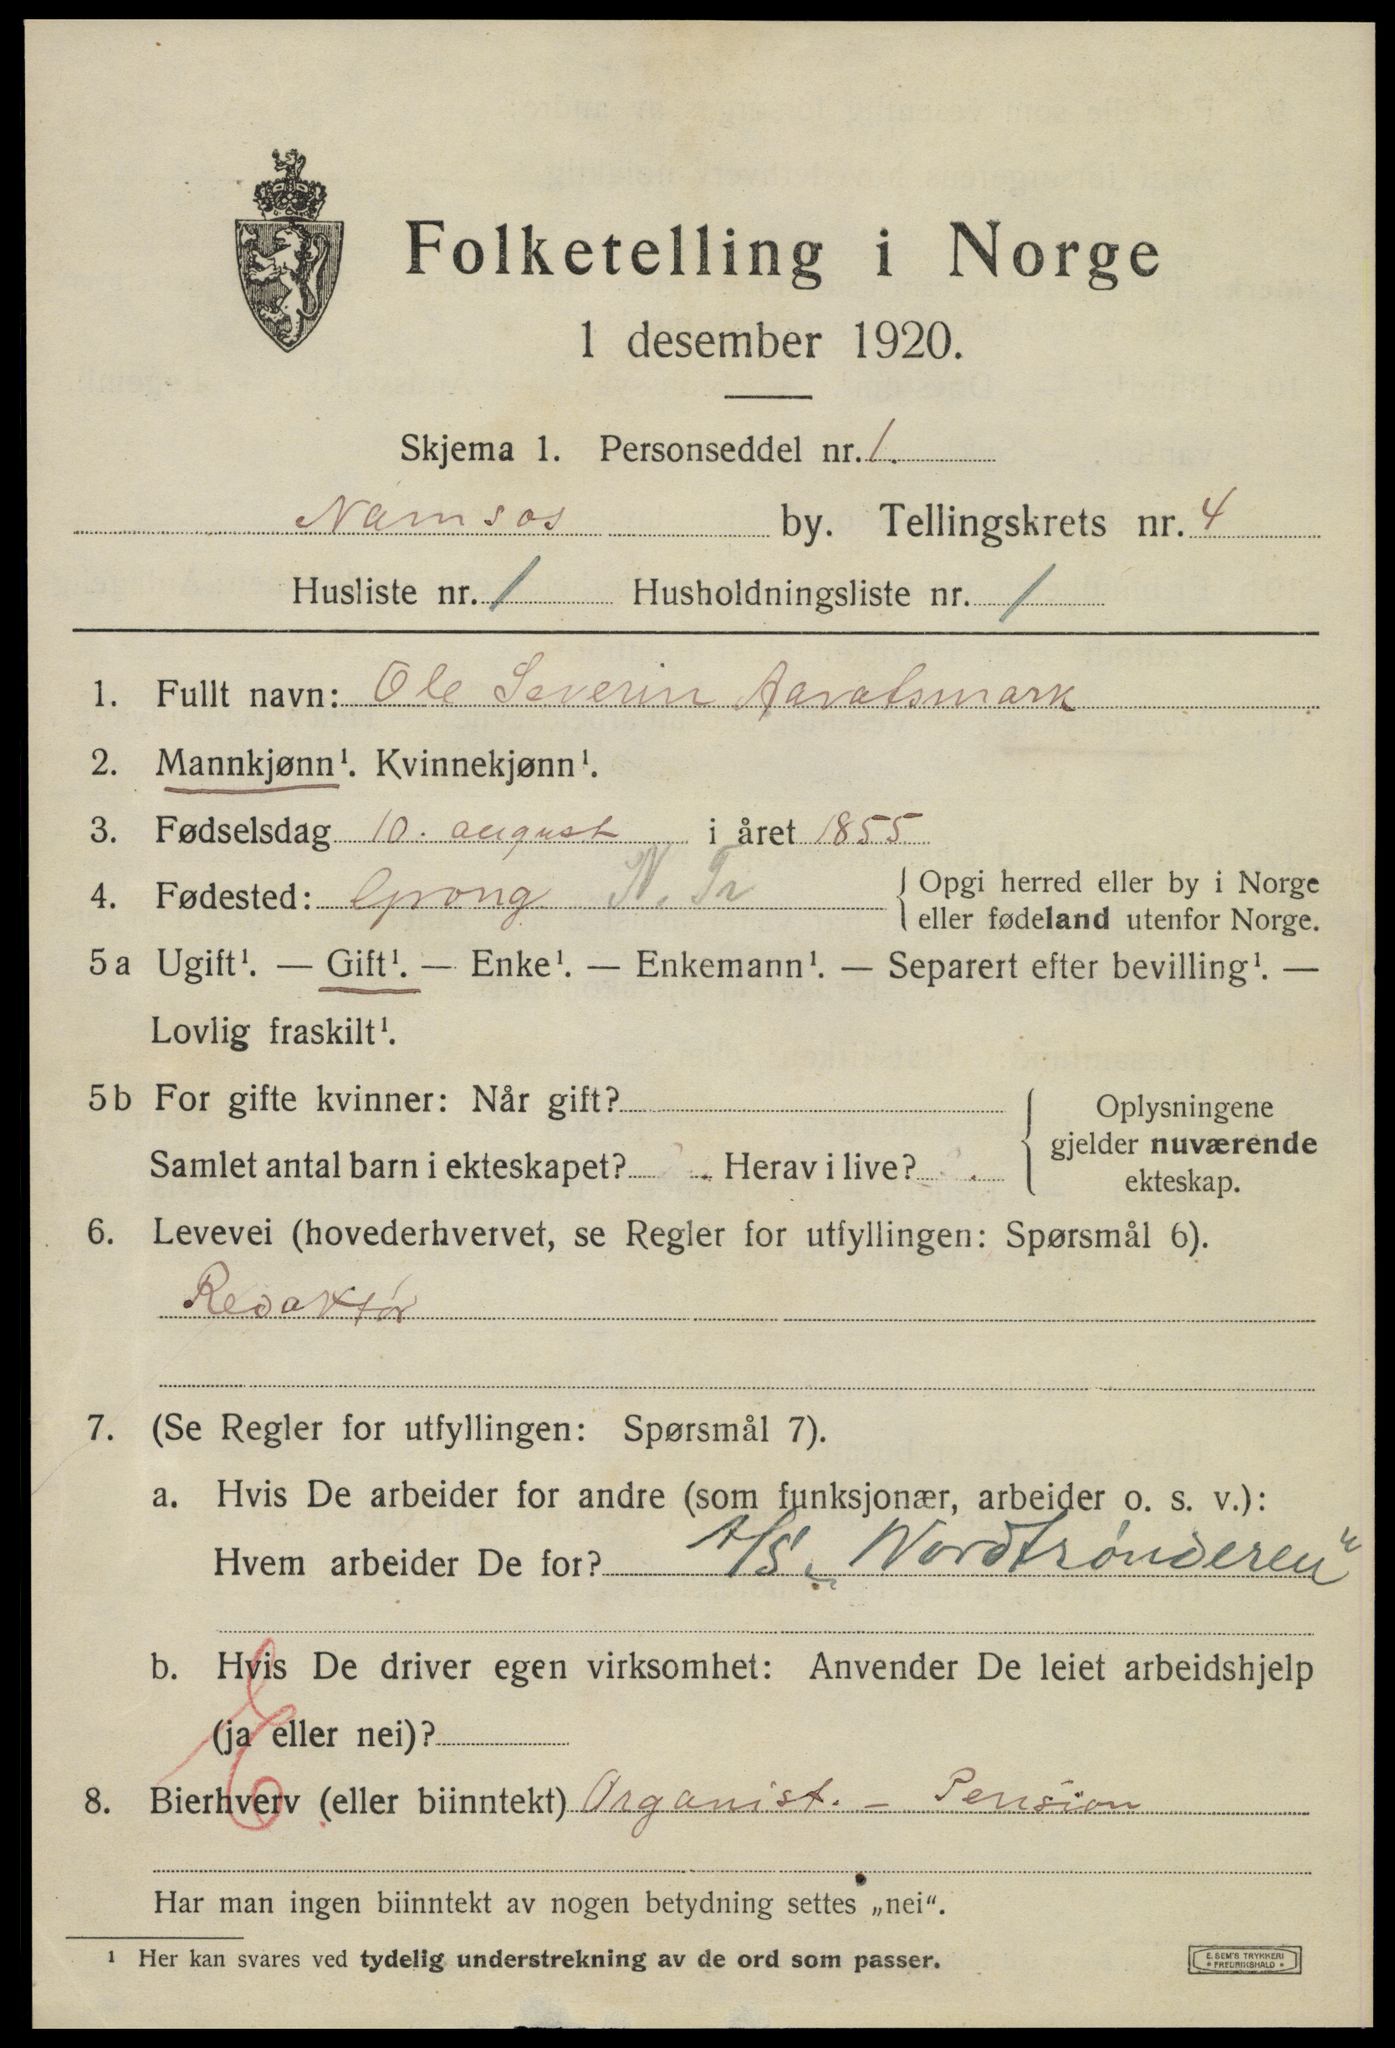 Folketelling i Norge
1 desember 1920.
Skjema 1. Personseddel nr. 1.
Namsos by. Tellingskrets nr. 4
Husliste nr. 1 Husholdningsliste nr. 1
1. Fullt navn: Ole Severin Aavatsmark
2. Mannkjønn¹. Kvinnekjønn¹.
3. Fødselsdag 10. august i året 1855
4. Fødested: Grong N. Tr { Opgi herred eller by i Norge
eller fødeland utenfor Norge.
5 a Ugift¹. — Gift¹. — Enke¹. — Enkemann¹. — Separert efter bevilling¹. —
Lovlig fraskilt¹.
5 b For gifte kvinner: Når gift?
Samlet antal barn i ekteskapet? Herav i live?
{ Oplysningene
gjelder nuværende
ekteskap.
6. Levevei (hovederhvervet, se Regler for utfyllingen: Spørsmål 6).
Redaktør
7. (Se Regler for utfyllingen: Spørsmål 7).
a. Hvis De arbeider for andre (som funksjonær, arbeider o. s. v.):
Hvem arbeider De for? A/S „Nordtrønderen"
b. Hvis De driver egen virksomhet: Anvender De leiet arbeidshjelp
(ja eller nei)?
8. Bierhverv (eller biinntekt) Organist. — Pension
Har man ingen biinntekt av nogen betydning settes „nei".
¹ Her kan svares ved tydelig understrekning av de ord som passer.
E. SEM'S TRYKKERI
* FREDRIKSHALD *